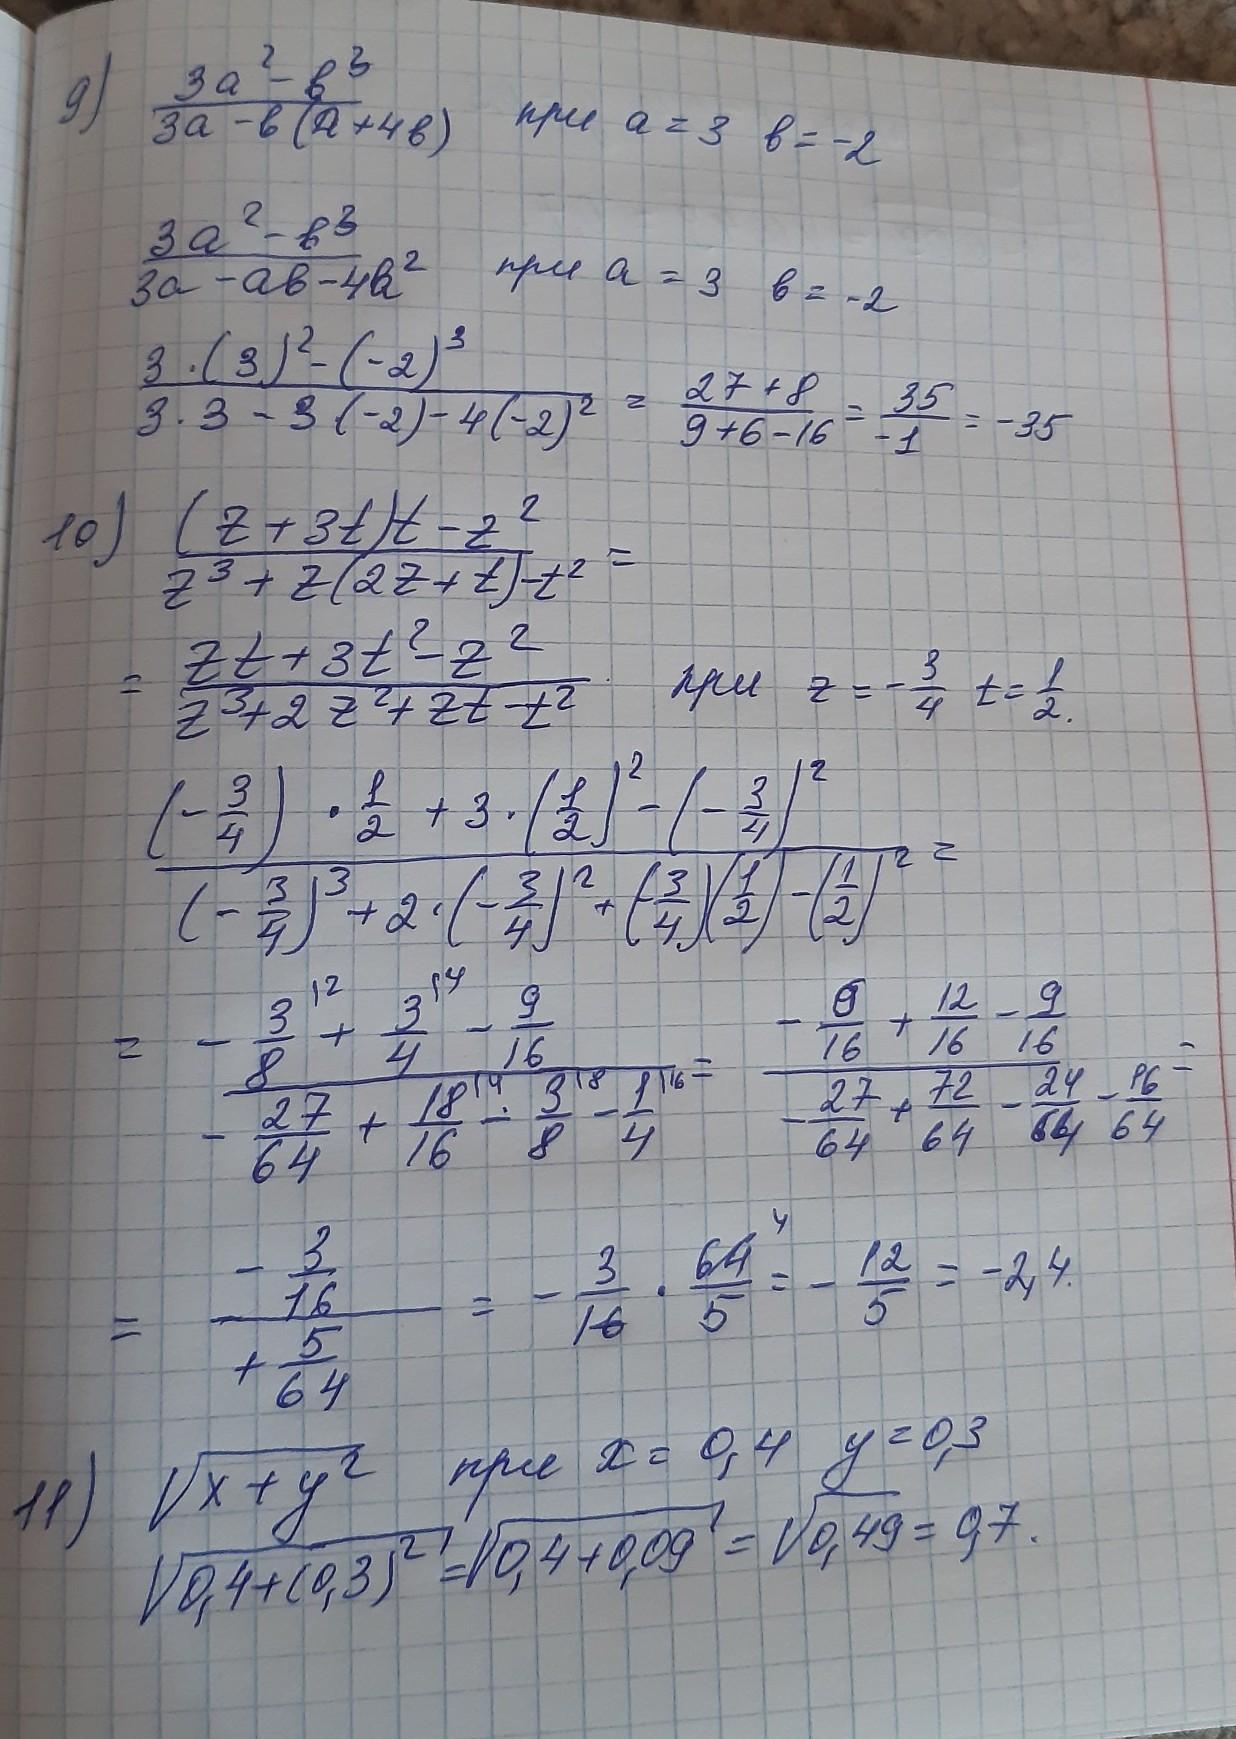 9) (3a² - b³)/(3a - b(a + 4b)) при a = 3 b = -2
(3a² - b³)/(3a - ab - 4b²) при a = 3 b = -2
(3·(3)² - (-2)³)/(3·3 - 3(-2) - 4(-2)²) = (27 + 8)/(9 + 6 - 16) = 35/-1 = -35
10) ((z + 3t)t - z²)/(z³ + z(2z + t) - t²) =
= (zt + 3t² - z²)/(z³ + 2z² + zt - t²) при z = -3/4 t = 1/2.
((-3/4) · 1/2 + 3·(1/2)² - (-3/4)²)/((-3/4)³ + 2·(-3/4)² + (-3/4)(1/2) - (1/2)²) =
= (-3/8 |2 + 3/4 |4 - 9/16)/(-27/64 + 18/16 |4 - 3/8 |8 - 1/4 |16) = (-6/16 + 12/16 - 9/16)/(-27/64 + 72/64 - 24/64 - 16/64) =
= (-3/16)/(+5/64) = -3/16 · 64/5 4 = -12/5 = -2,4.
11) √(x + y²) при x = 0,4 y = 0,3
√(0,4 + (0,3)²) = √(0,4 + 0,09) = √0,49 = 0,7.